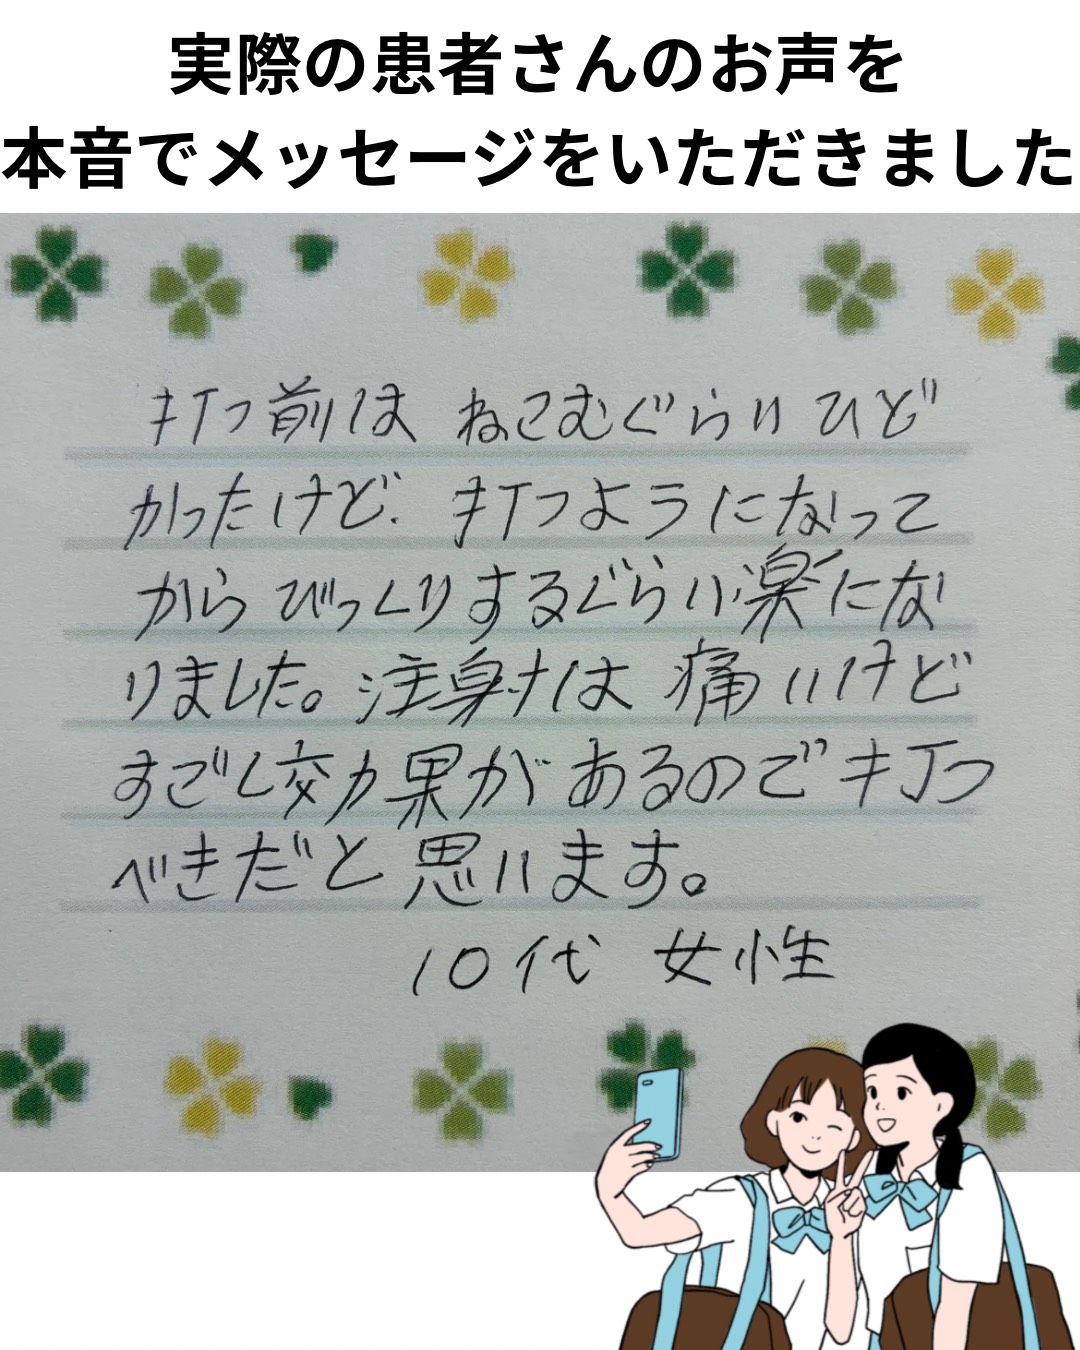 実際の患者さんのお声を
本音でメッセージをいただきました
打つ前は ねこむぐらい ひど
かったけど、打つようになって
から びっくりするぐらい楽にな
りました。注射は 痛いけど
すごく効果が あるので 打つ
べきだと 思います。
10代 女性